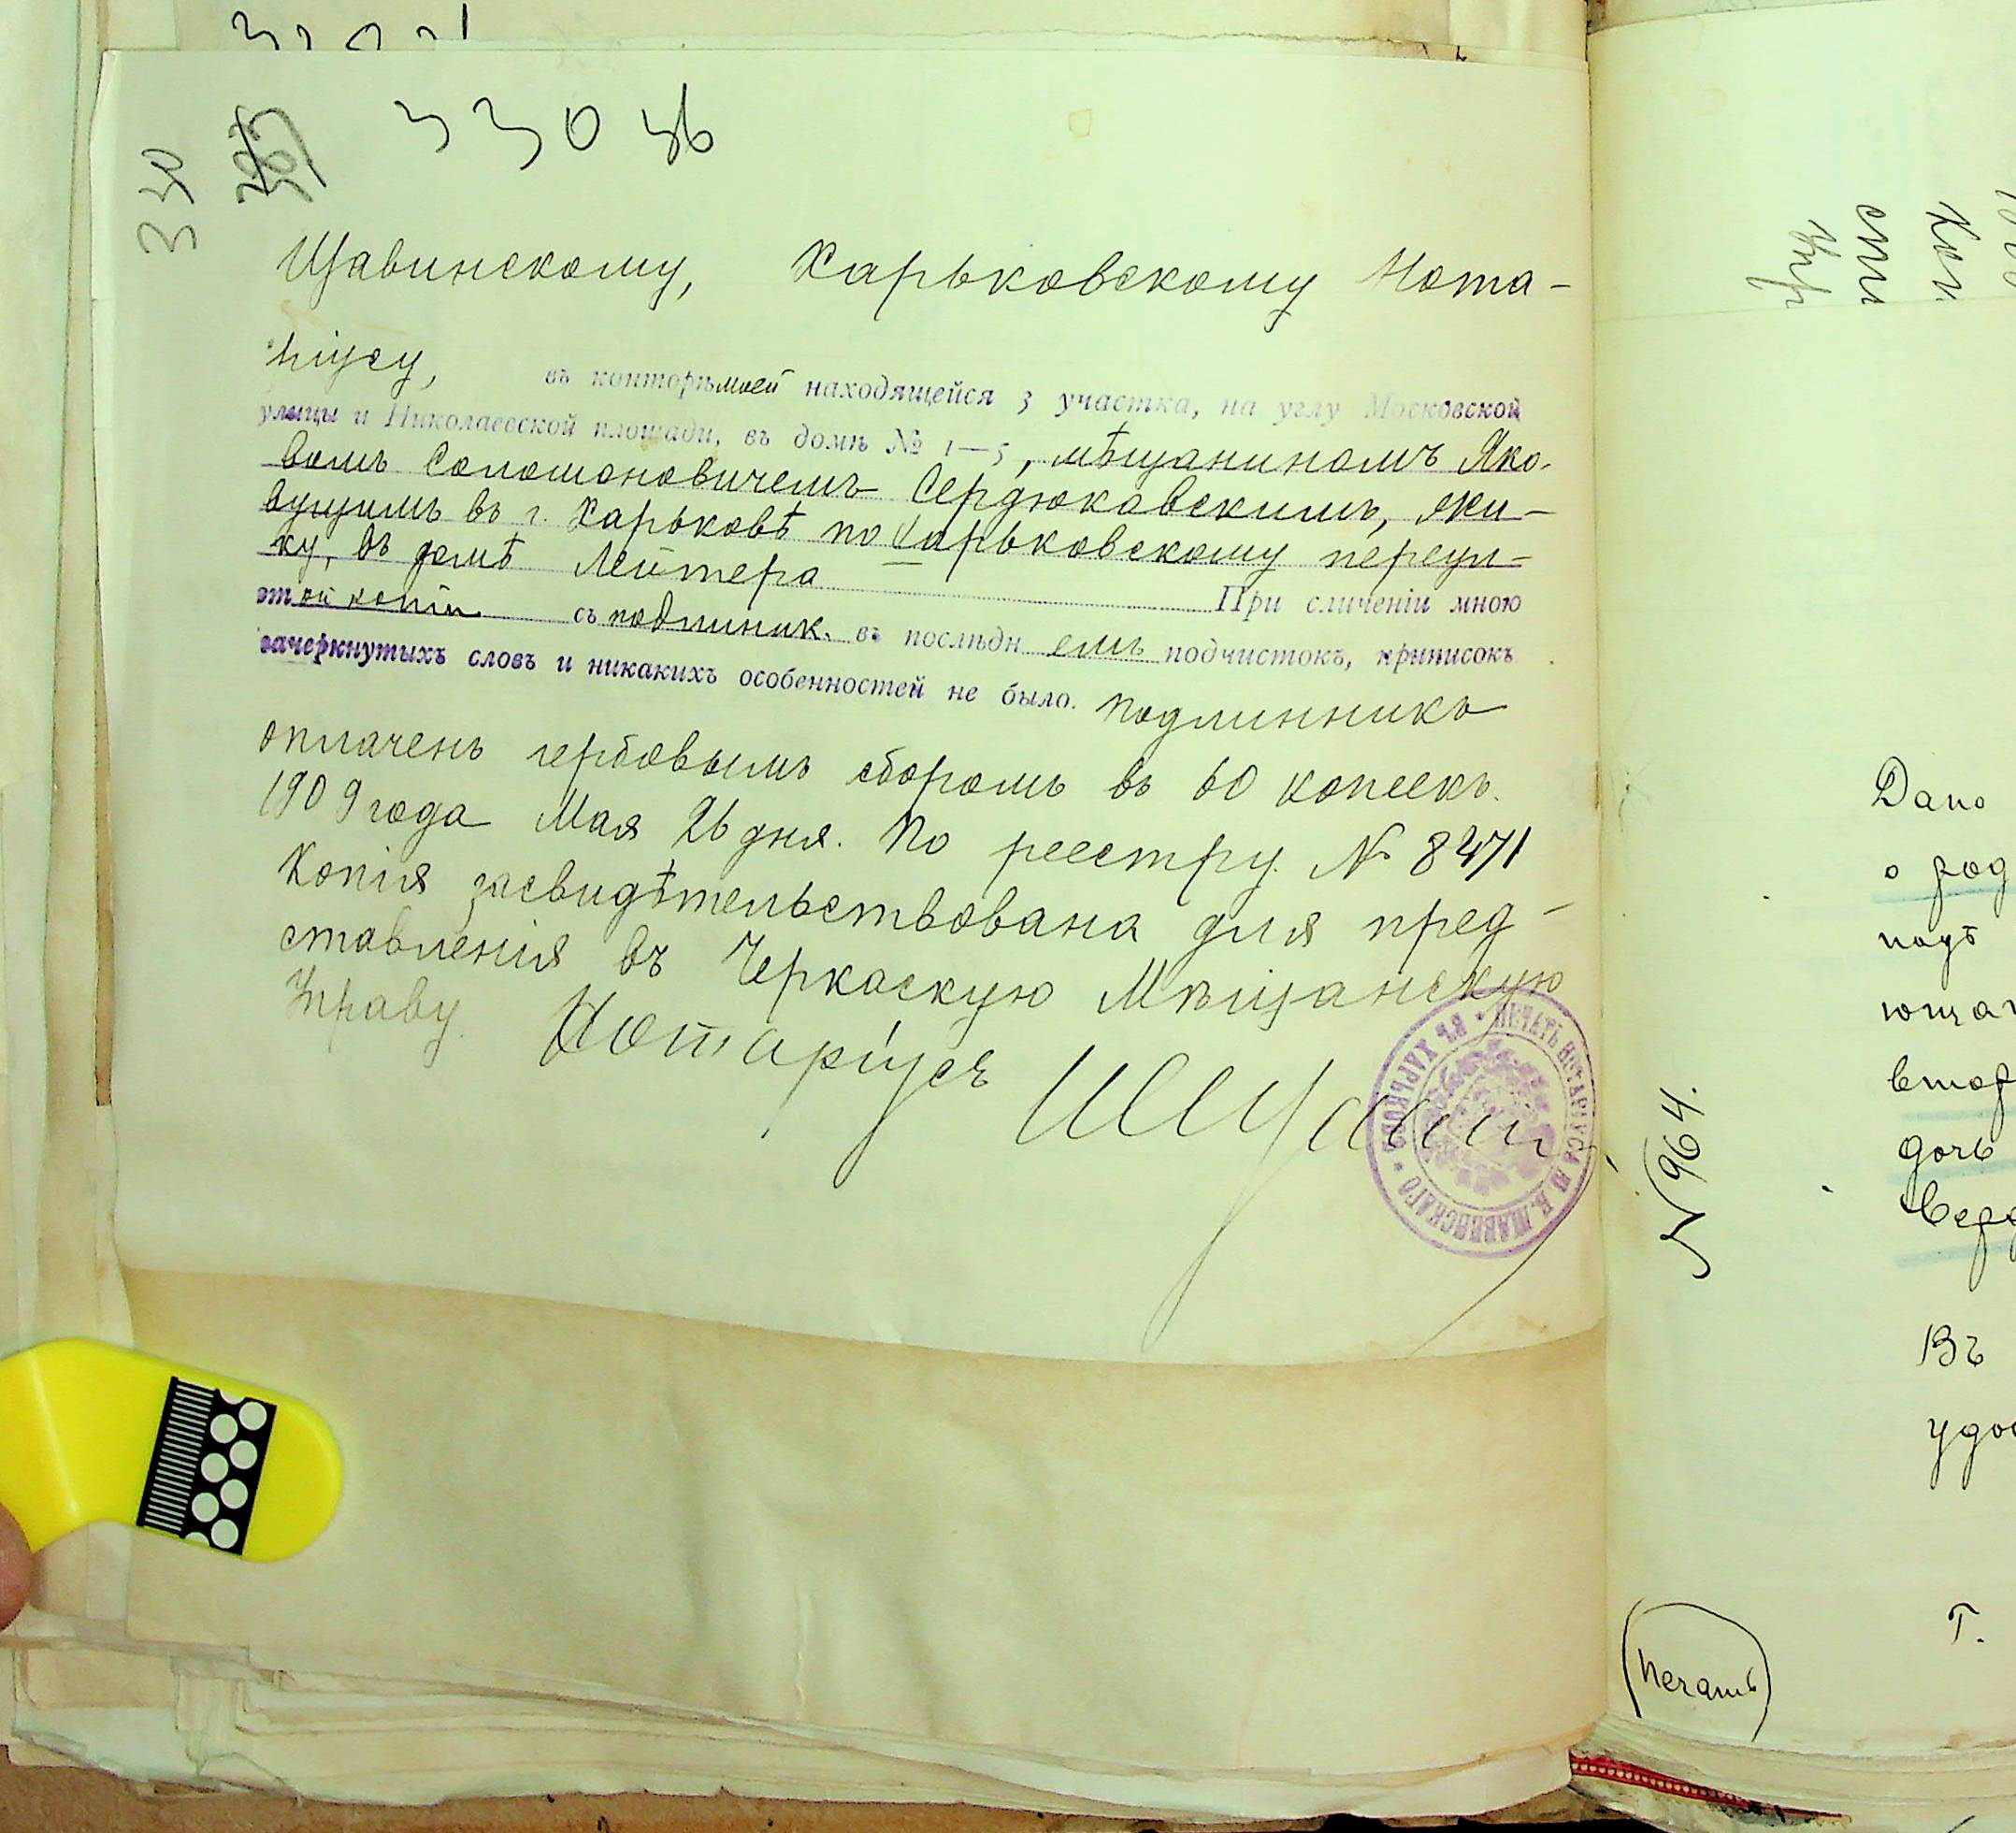 330 об
340
Щавинскому, Харьковскому Нота-
ріусу, въ конторѣ моей находящейся 3 участка, на углу Московской
улицы и Николаевской площади, въ домѣ № 1—5, мѣщаниномъ Яко-
вомъ Соломоновичемъ Сердюковскимъ, жи-
вущимъ въ г. Харьковѣ по Харьковскому переул-
ку, въ домѣ Лейтера При сличеніи мною
этой копіи съ подлиник. въ послѣднемъ подчистокъ, приписокъ
зачеркнутыхъ словъ и никакихъ особенностей не было. Подлинникъ
оплаченъ гербовымъ сборомъ въ 60 копеекъ.
1909 года Мая 26 дня. По реестру № 8471
Копія засвидѣтельствована для пред-
ставленія въ Черкаскую Мѣщанскую
Управу. Нотаріусъ
ПЕЧАТЬ НОТАРІУСА Ю. И. ЩАВИНСКАГО • ВЪ ХАРЬКОВѢ •
№ 964.
Дано
о род
подъ
ющая
втор
дочь
Верд
Въ
удос
Т.
Печать